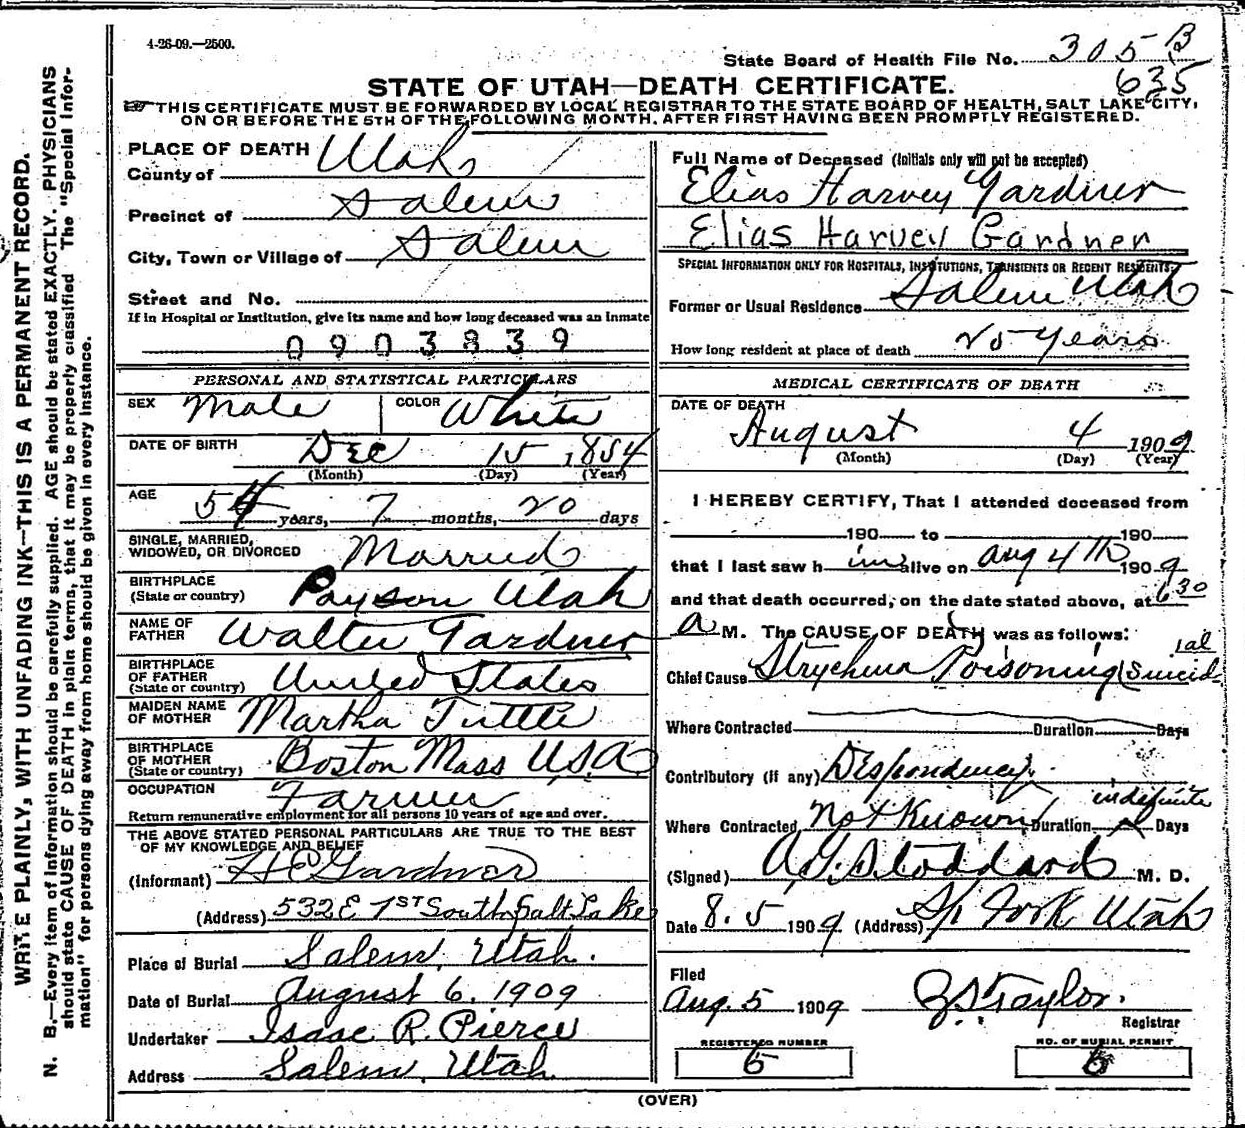 4-26-09.—2500.
State Board of Health File No. 305 B
635
STATE OF UTAH—DEATH CERTIFICATE.
THIS CERTIFICATE MUST BE FORWARDED BY LOCAL REGISTRAR TO THE STATE BOARD OF HEALTH, SALT LAKE CITY,
ON OR BEFORE THE 5TH OF THE FOLLOWING MONTH, AFTER FIRST HAVING BEEN PROMPTLY REGISTERED.
WRITE PLAINLY, WITH UNFADING INK—THIS IS A PERMANENT RECORD.
N. B.—Every item of information should be carefully supplied. AGE should be stated EXACTLY. PHYSICIANS
should state CAUSE OF DEATH in plain terms, that it may be properly classified. The "Special Infor-
mation" for persons dying away from home should be given in every instance.
PLACE OF DEATH
County of Utah
Precinct of Salem
City, Town or Village of Salem
Street and No.
If in Hospital or Institution, give its name and how long deceased was an Inmate
0903839
PERSONAL AND STATISTICAL PARTICULARS
SEX Male COLOR White
DATE OF BIRTH Dec 15, 1854
(Month) (Day) (Year)
AGE
54 years, 7 months, 20 days
SINGLE, MARRIED,
WIDOWED, OR DIVORCED Married
BIRTHPLACE
(State or country) Payson Utah
NAME OF
FATHER Walter Gardner
BIRTHPLACE
OF FATHER
(State or country) United States
MAIDEN NAME
OF MOTHER Martha Tuttle
BIRTHPLACE
OF MOTHER
(State or country) Boston Mass U.S.A
OCCUPATION Farmer
Return remunerative employment for all persons 10 years of age and over.
THE ABOVE STATED PERSONAL PARTICULARS ARE TRUE TO THE BEST
OF MY KNOWLEDGE AND BELIEF
(Informant) H E Gardner
(Address) 532 E 1ST South Salt Lake
Place of Burial Salem, Utah.
Date of Burial August 6, 1909
Undertaker Isaac R. Pierce
Address Salem, Utah
Full Name of Deceased (Initials only will not be accepted)
Elias Harvey Gardner
Elias Harvey Gardner
SPECIAL INFORMATION ONLY FOR HOSPITALS, INSTITUTIONS, TRANSIENTS OR RECENT RESIDENTS.
Former or Usual Residence Salem Utah
How long resident at place of death 25 years
MEDICAL CERTIFICATE OF DEATH
DATE OF DEATH
August 4 1909
(Month) (Day) (Year)
I HEREBY CERTIFY, That I attended deceased from
190 to 190
that I last saw h im alive on Aug 4th 1909
and that death occurred, on the date stated above, at 6 30
a M. The CAUSE OF DEATH was as follows:
Chief Cause Strychnia Poisoning (Suicidial
Where Contracted Duration Days
Contributory (if any) Despondency
Where Contracted Not Known Duration indefinite Days
(Signed) A. J. Stoddard M. D.
Date 8.5 1909 (Address) Sp Fork Utah
Filed
Aug. 5 1909 Z S Taylor.
Registrar
REGISTERED NUMBER NO. OF BURIAL PERMIT
6 6
(OVER)